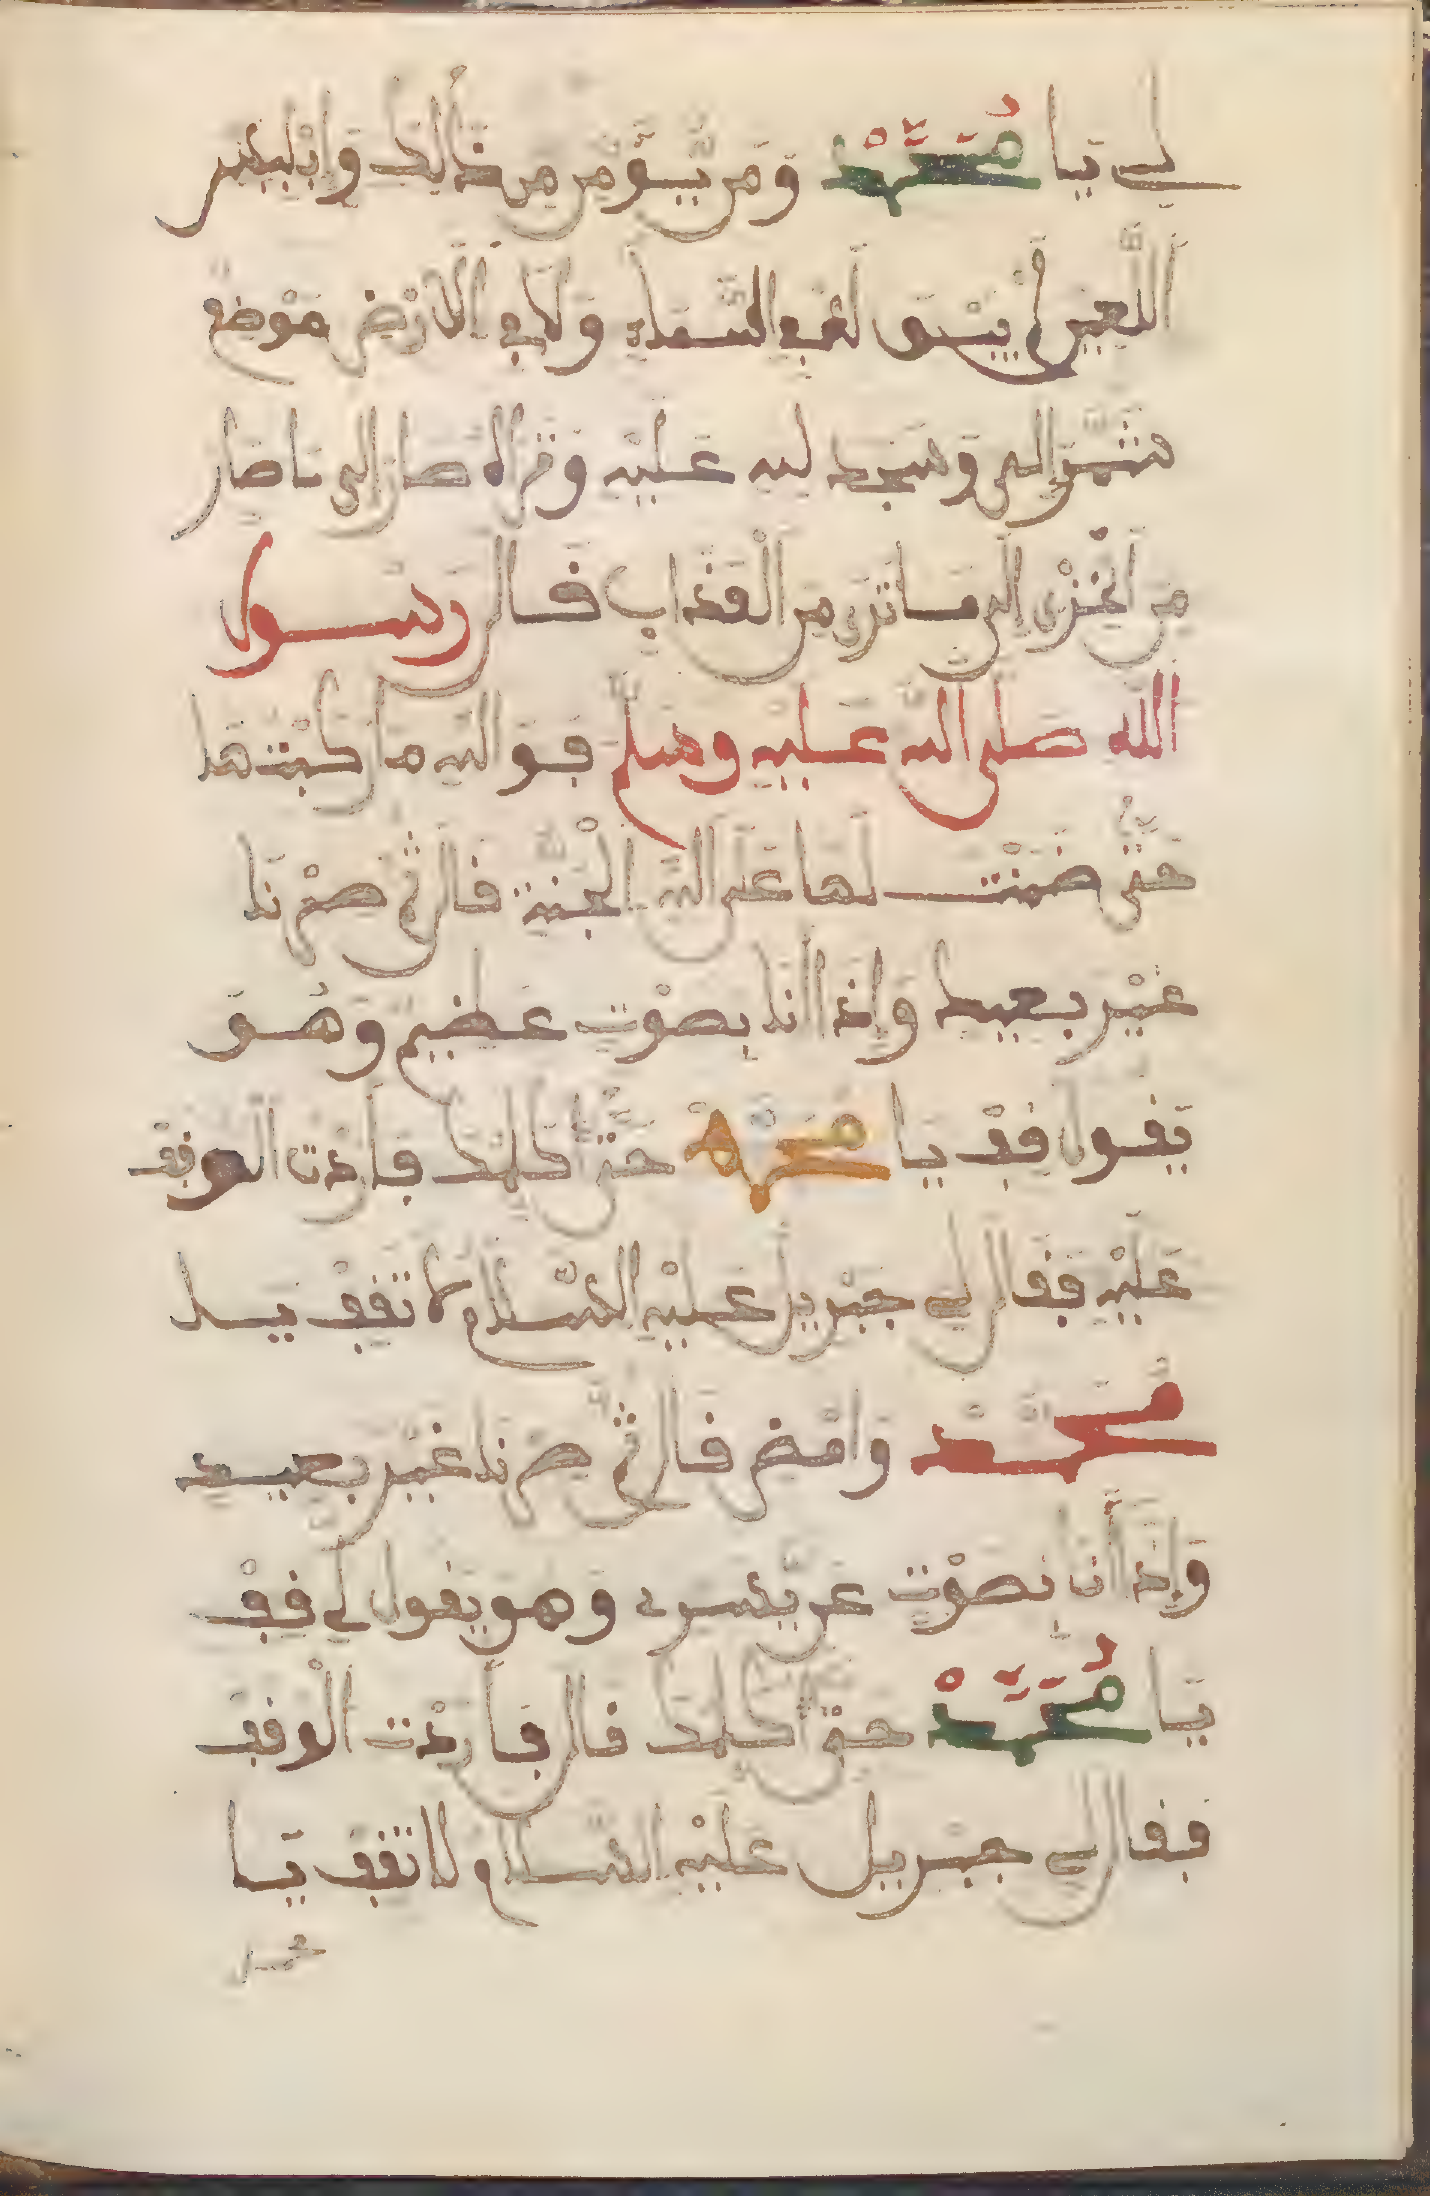 لي يا محمد ومن يؤمن من ذالك وابليس
اللعين لم يبق له في السماء ولا في الارض موضع
شبر الى وسجد لله عليه وتراه صار الى ما صار
من الخزي الى ما ترى من العذاب فال رسول
الله صلى الله عليه وسلم فوالله ما ركبتها
حتى ضمنت لها على الله الجنة فال ثم صرنا
غير بعيد واذا انا بصوت عظيم وهو
يفول فف يا محمد حتى اكلمك فأردت الوفف
عليه ففال لي جبريل عليه السلام لا تفف يا
محمد وامض فال ثم صرنا غير بعيد
واذا أنا بصوت عن يسرى وهو يفول لي فف
يا محمد حتى اكلمك فال فأردت الوفف
ففال لي جبريل عليه السلام لا تفف يا
محمد